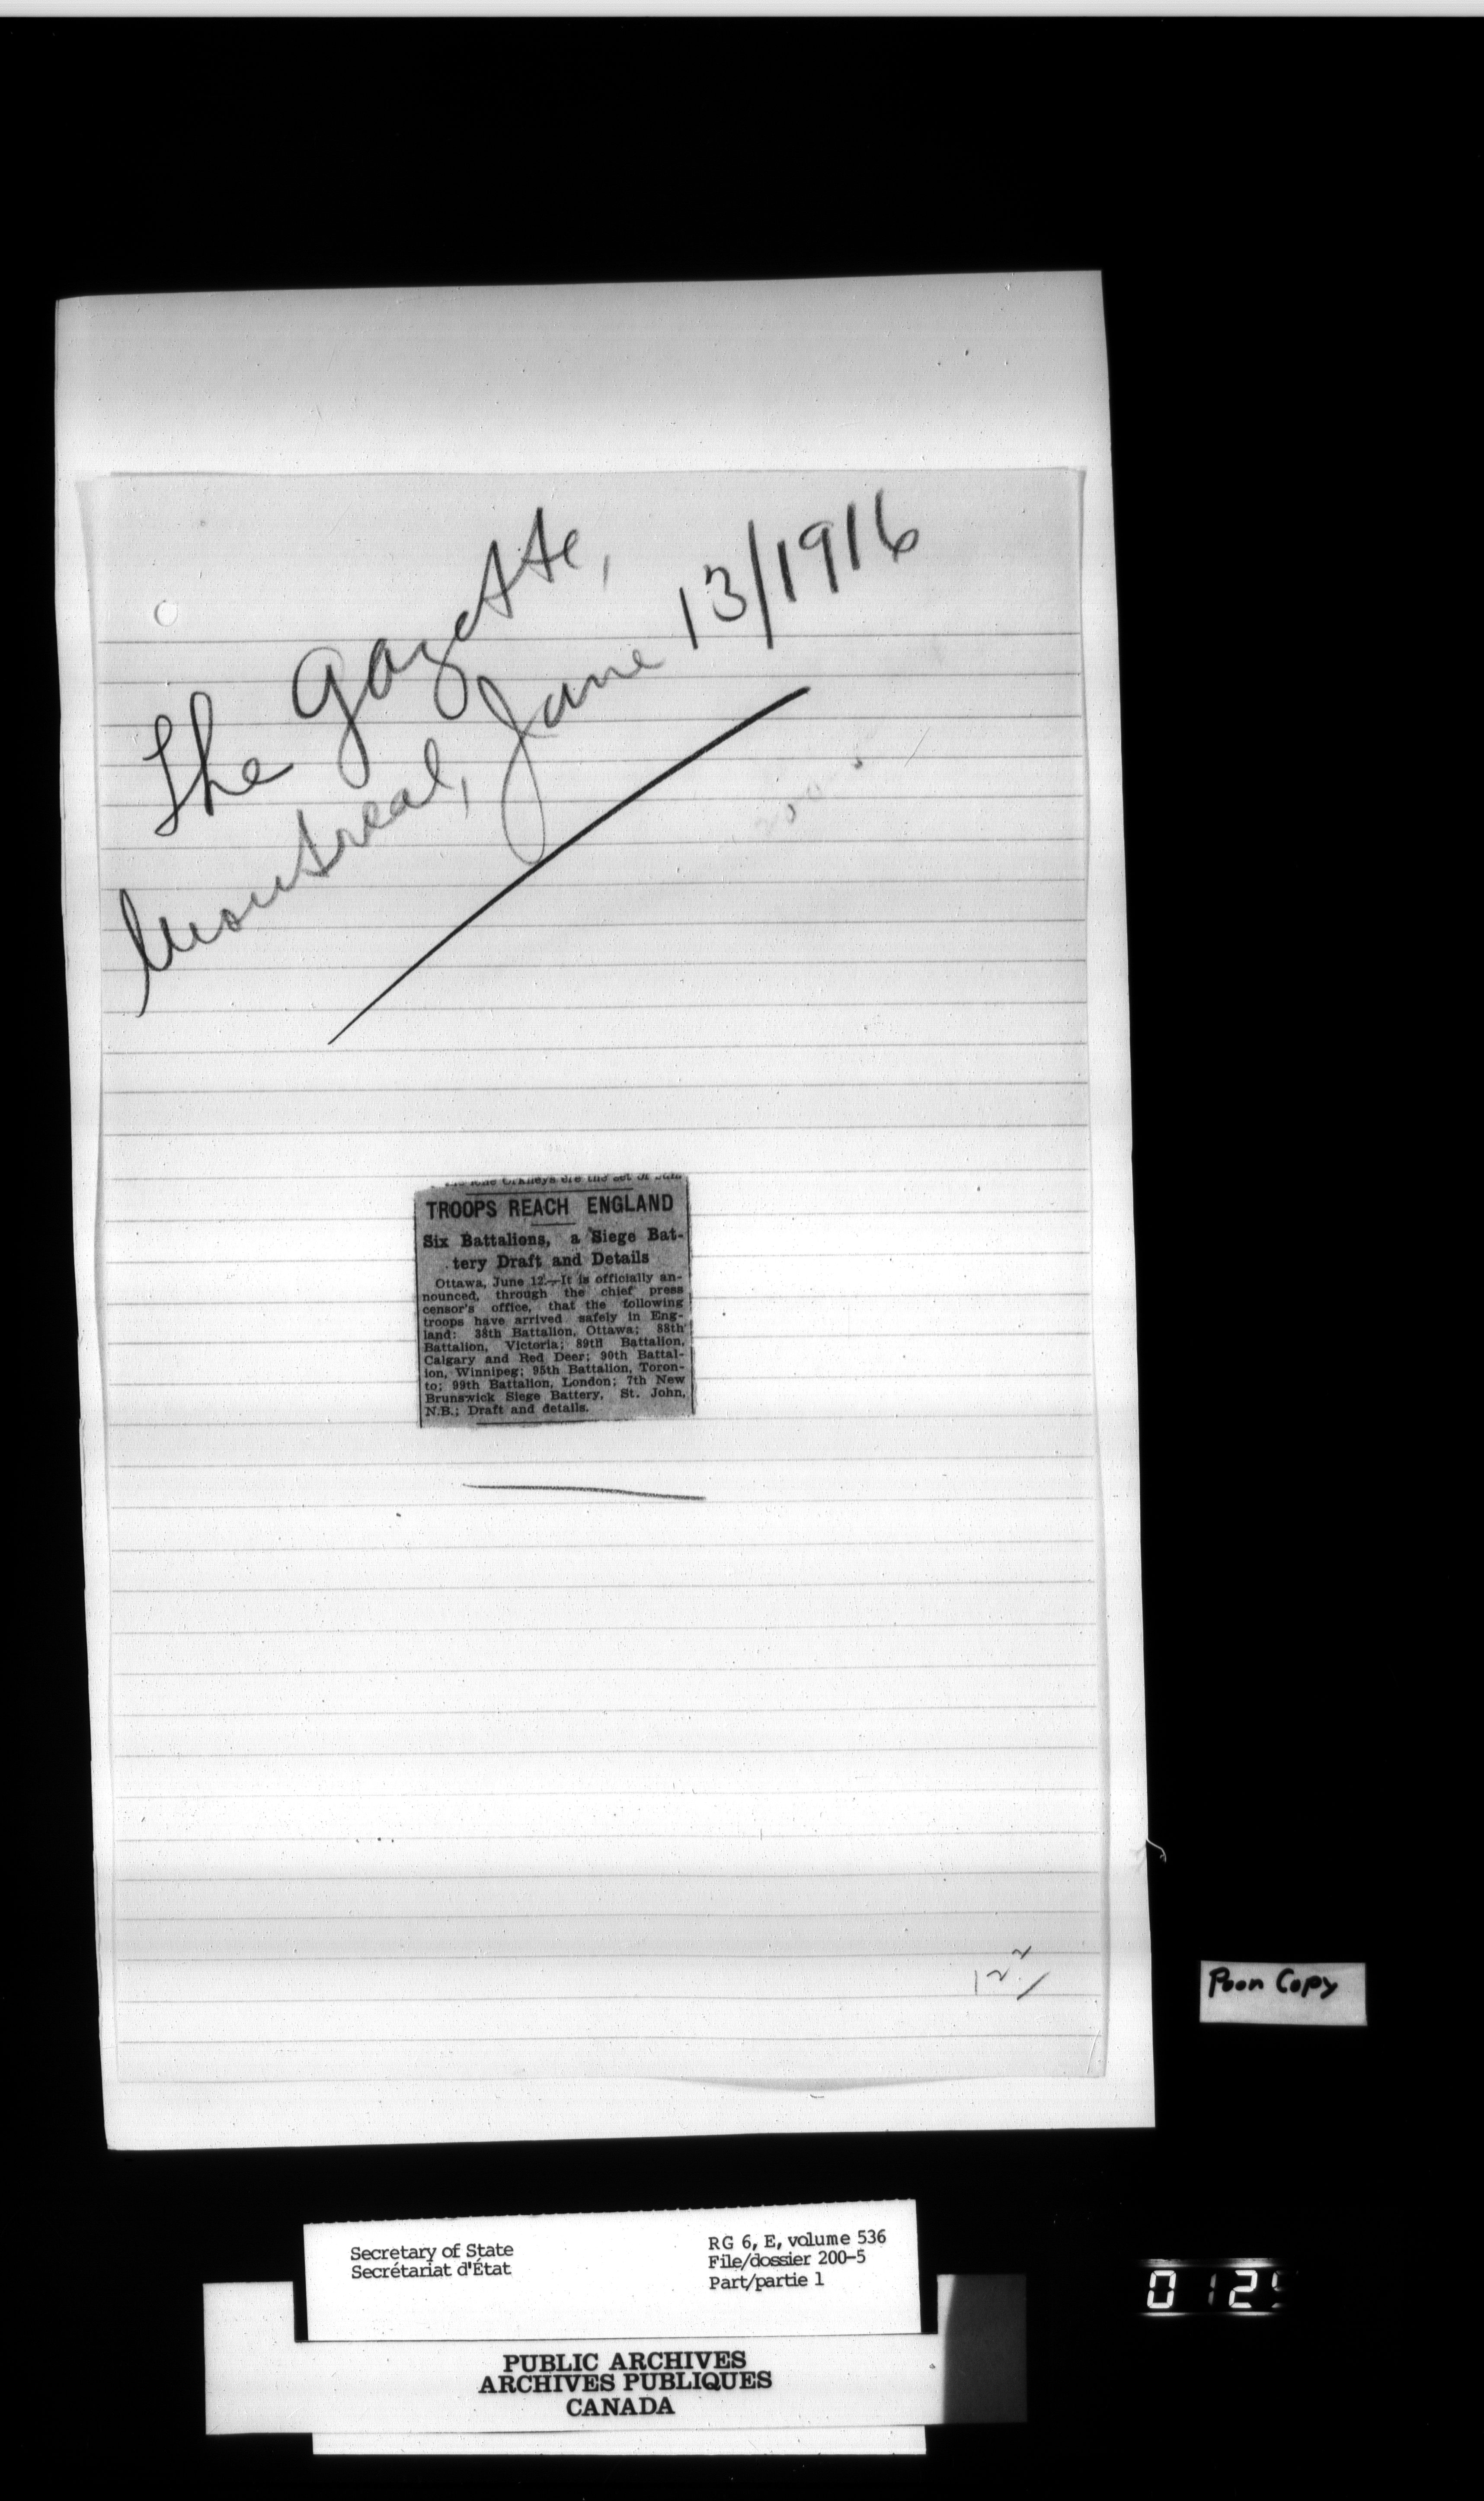 The Gazette,
Montreal, June 13/1916
200-5
TROOPS REACH ENGLAND
Six Battalions, a Siege Bat-
tery Draft and Details
Ottawa, June 12.—It is officially an-
nounced, through the chief press
censor's office, that the following
troops have arrived safely in Eng-
land: 38th Battalion, Ottawa; 88th
Battalion, Victoria; 89th Battalion,
Calgary and Red Deer; 90th Battal-
ion, Winnipeg; 95th Battalion, Toron-
to; 99th Battalion, London; 7th New
Brunswick Siege Battery, St. John,
N.B.; Draft and details.
Poor Copy
Secretary of State
Secrétariat d'État
RG 6, E, volume 536
File/dossier 200-5
Part/partie 1
PUBLIC ARCHIVES
ARCHIVES PUBLIQUES
CANADA